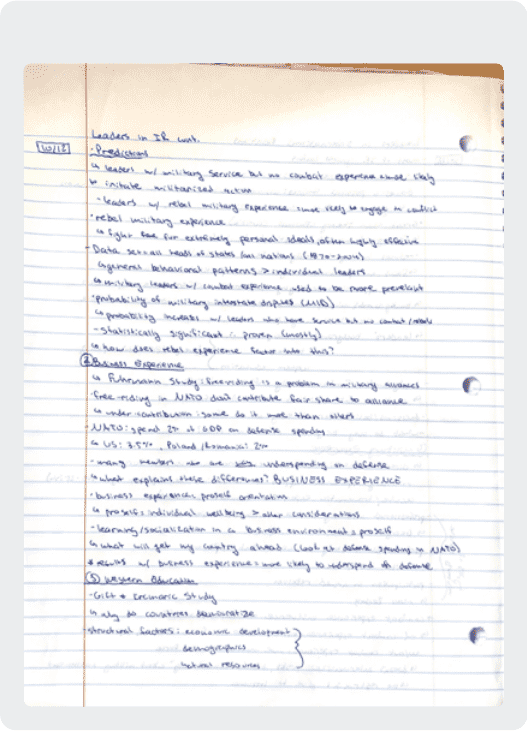 Leaders in IR cont.
10/12
· Predictions
↳ leaders w/ military service but no combat experience = more likely
to initiate militarized action
- leaders w/ rebel military experience = more likely to engage in conflict
· rebel military experience
↳ fight for extremely personal ideals, often highly effective
- Data set = all heads of states and nations
↳ general behavioral patterns > individual leaders
↳ military leaders w/ combat experience used to be more prevalent
· probability of military interstate disputes (MID)
↳ probability increases w/ leaders who have service but no combat / rebels
- statistically significant ∴ proven (mostly)
↳ how does rebel experience factor into this?
② Business Experience
↳ Fuhrmann Study: free-riding is a problem in military alliances
· free-riding in NATO don't contribute fair share to alliance
↳ under-contribution: some do it more than others
· NATO: spend 2% of GDP on defense spending
↳ US: 3.5%, Poland / Romania: 2%
- many members are underspending on defense
↳ what explains these differences? BUSINESS EXPERIENCE
· business experience: proself orientation
↳ proself: individual wellbeing > other considerations
- learning/socialization in a business environment = proself
↳ what will get my country ahead (look at defense spending in NATO)
* results w/ business experience = more likely to underspend on defense
③ Western Education
- Gift + Krcmaric Study
↳ why do countries democratize
- structural factors: economic development
demographics
natural resources